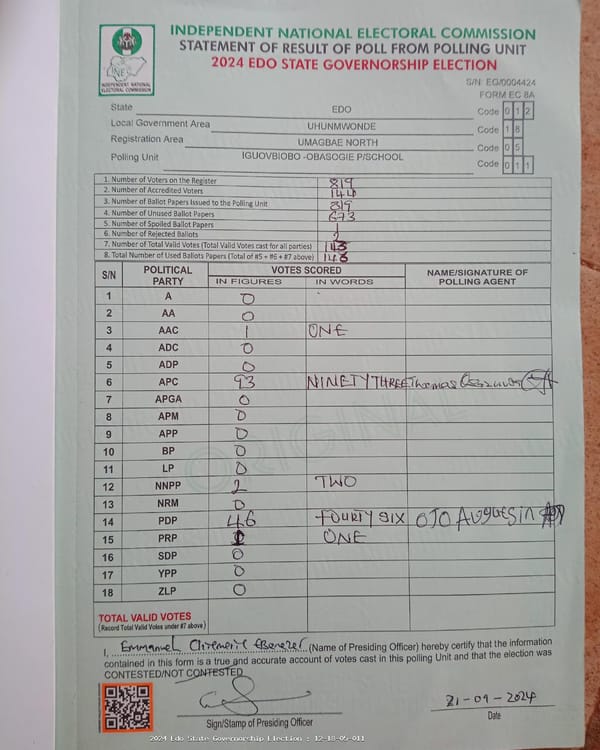 INDEPENDENT NATIONAL ELECTORAL COMMISSION
STATEMENT OF RESULT OF POLL FROM POLLING UNIT
2024 EDO STATE GOVERNORSHIP ELECTION
INDEPENDENT NATIONAL ELECTORAL COMMISSION
S/N: EG/0004424
FORM EC 8A
State EDO Code 0 1 2
Local Government Area UHUNMWONDE Code 1 8
Registration Area UMAGBAE NORTH Code 0 5
Polling Unit IGUOVBIOBO -OBASOGIE P/SCHOOL Code 0 1 1
1. Number of Voters on the Register 819
2. Number of Accredited Voters
3. Number of Ballot Papers Issued to the Polling Unit 819
4. Number of Unused Ballot Papers 673
5. Number of Spoiled Ballot Papers 1
6. Number of Rejected Ballots 2
7. Number of Total Valid Votes (Total Valid Votes cast for all parties) 143
8. Total Number of Used Ballots Papers (Total of #5 + #6 + #7 above)
S/N POLITICAL PARTY VOTES SCORED NAME/SIGNATURE OF POLLING AGENT
IN FIGURES IN WORDS
1 A 0
2 AA 0
3 AAC 1 ONE
4 ADC 0
5 ADP 0
6 APC 93 NINETY THREE Thomas
7 APGA 0
8 APM 0
9 APP 0
10 BP 0
11 LP 0
12 NNPP 2 TWO
13 NRM 0
14 PDP 46 FOURTY SIX OJO
15 PRP 1 ONE
16 SDP 0
17 YPP 0
18 ZLP 0
TOTAL VALID VOTES
(Record Total Valid Votes under #7 above)
I, Emmanuel Ebenezer (Name of Presiding Officer) hereby certify that the information
contained in this form is a true and accurate account of votes cast in this polling Unit and that the election was
CONTESTED/NOT CONTESTED
Sign/Stamp of Presiding Officer
21-09-2024
Date
2024 Edo State Governorship Election : 12-18-05-011